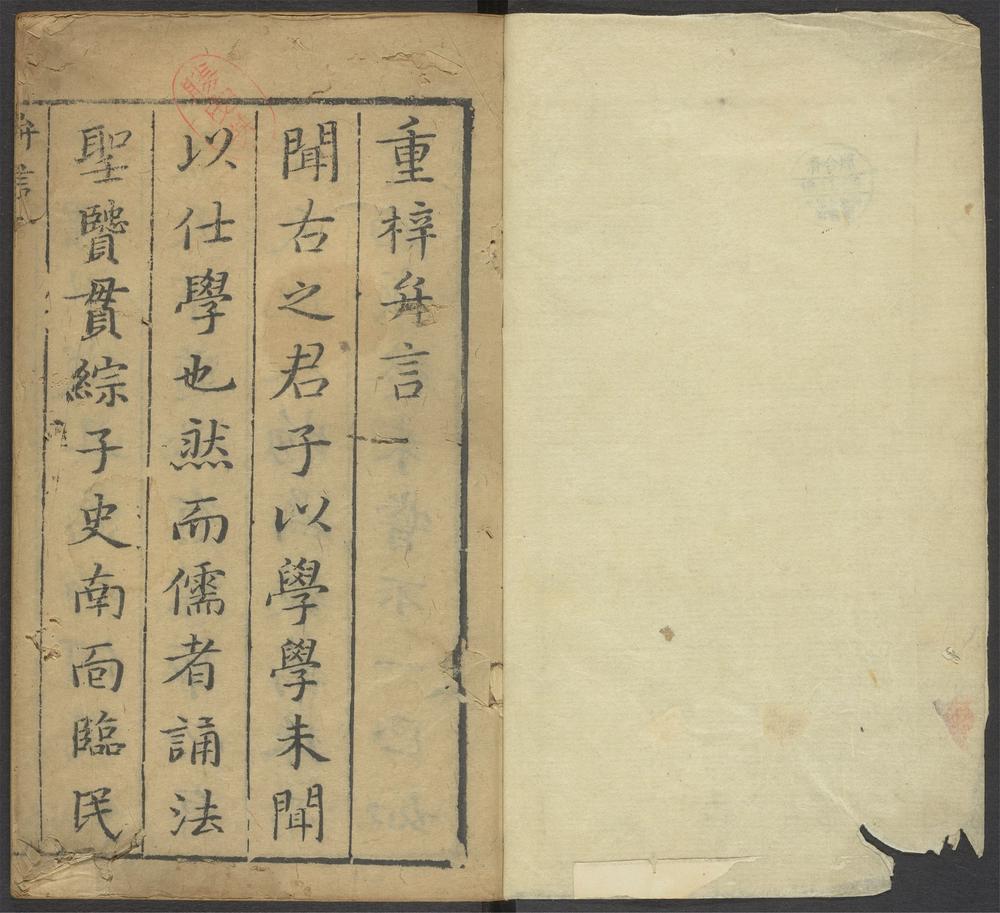 重梓弁言
聞古之君子以學學未聞
以仕學也然而儒者誦法
聖賢貫綜子史南面臨民
弁言